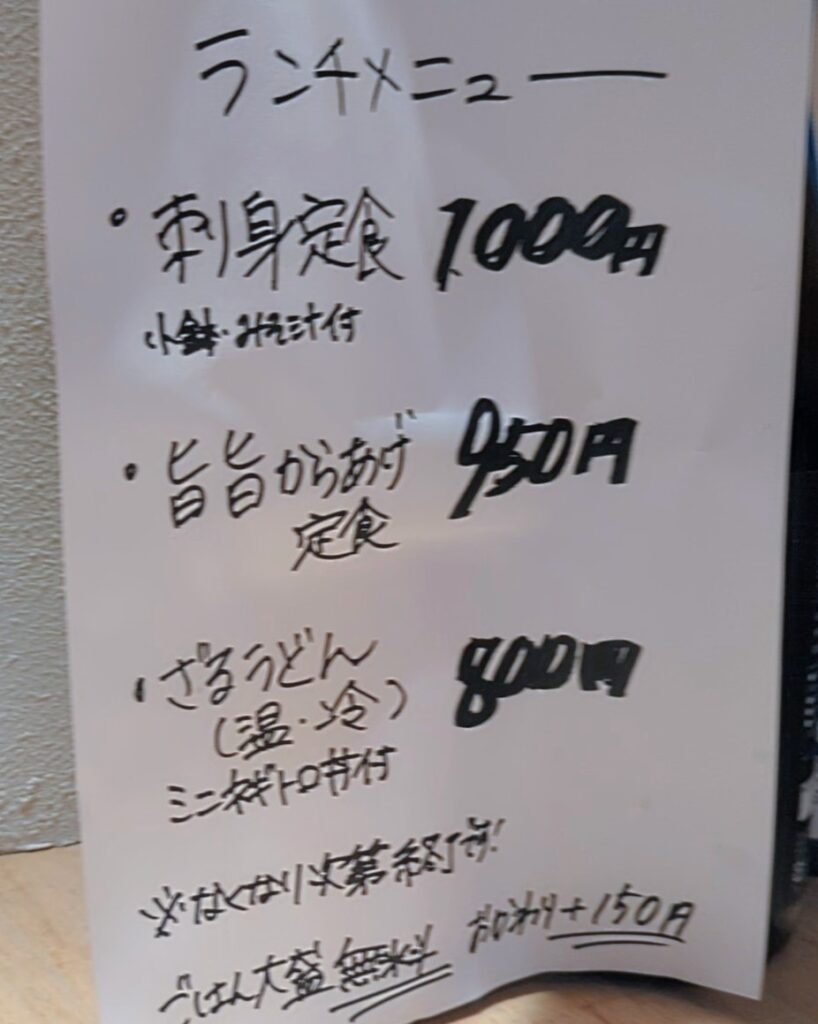 ランチメニュー
・刺身定食 1,000円
小鉢・みそ汁付
・旨旨からあげ 950円
定食
・ざるうどん 800円
(温・冷)
ミニネギトロ丼付
※なくなり次第終了です!
ごはん大盛無料 おかわり+150円